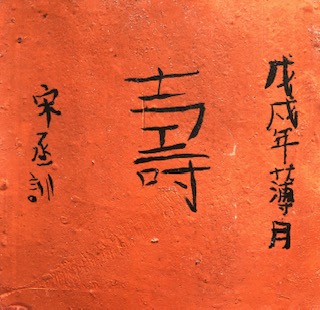 戊戌年薄月
壽
宋丞訓